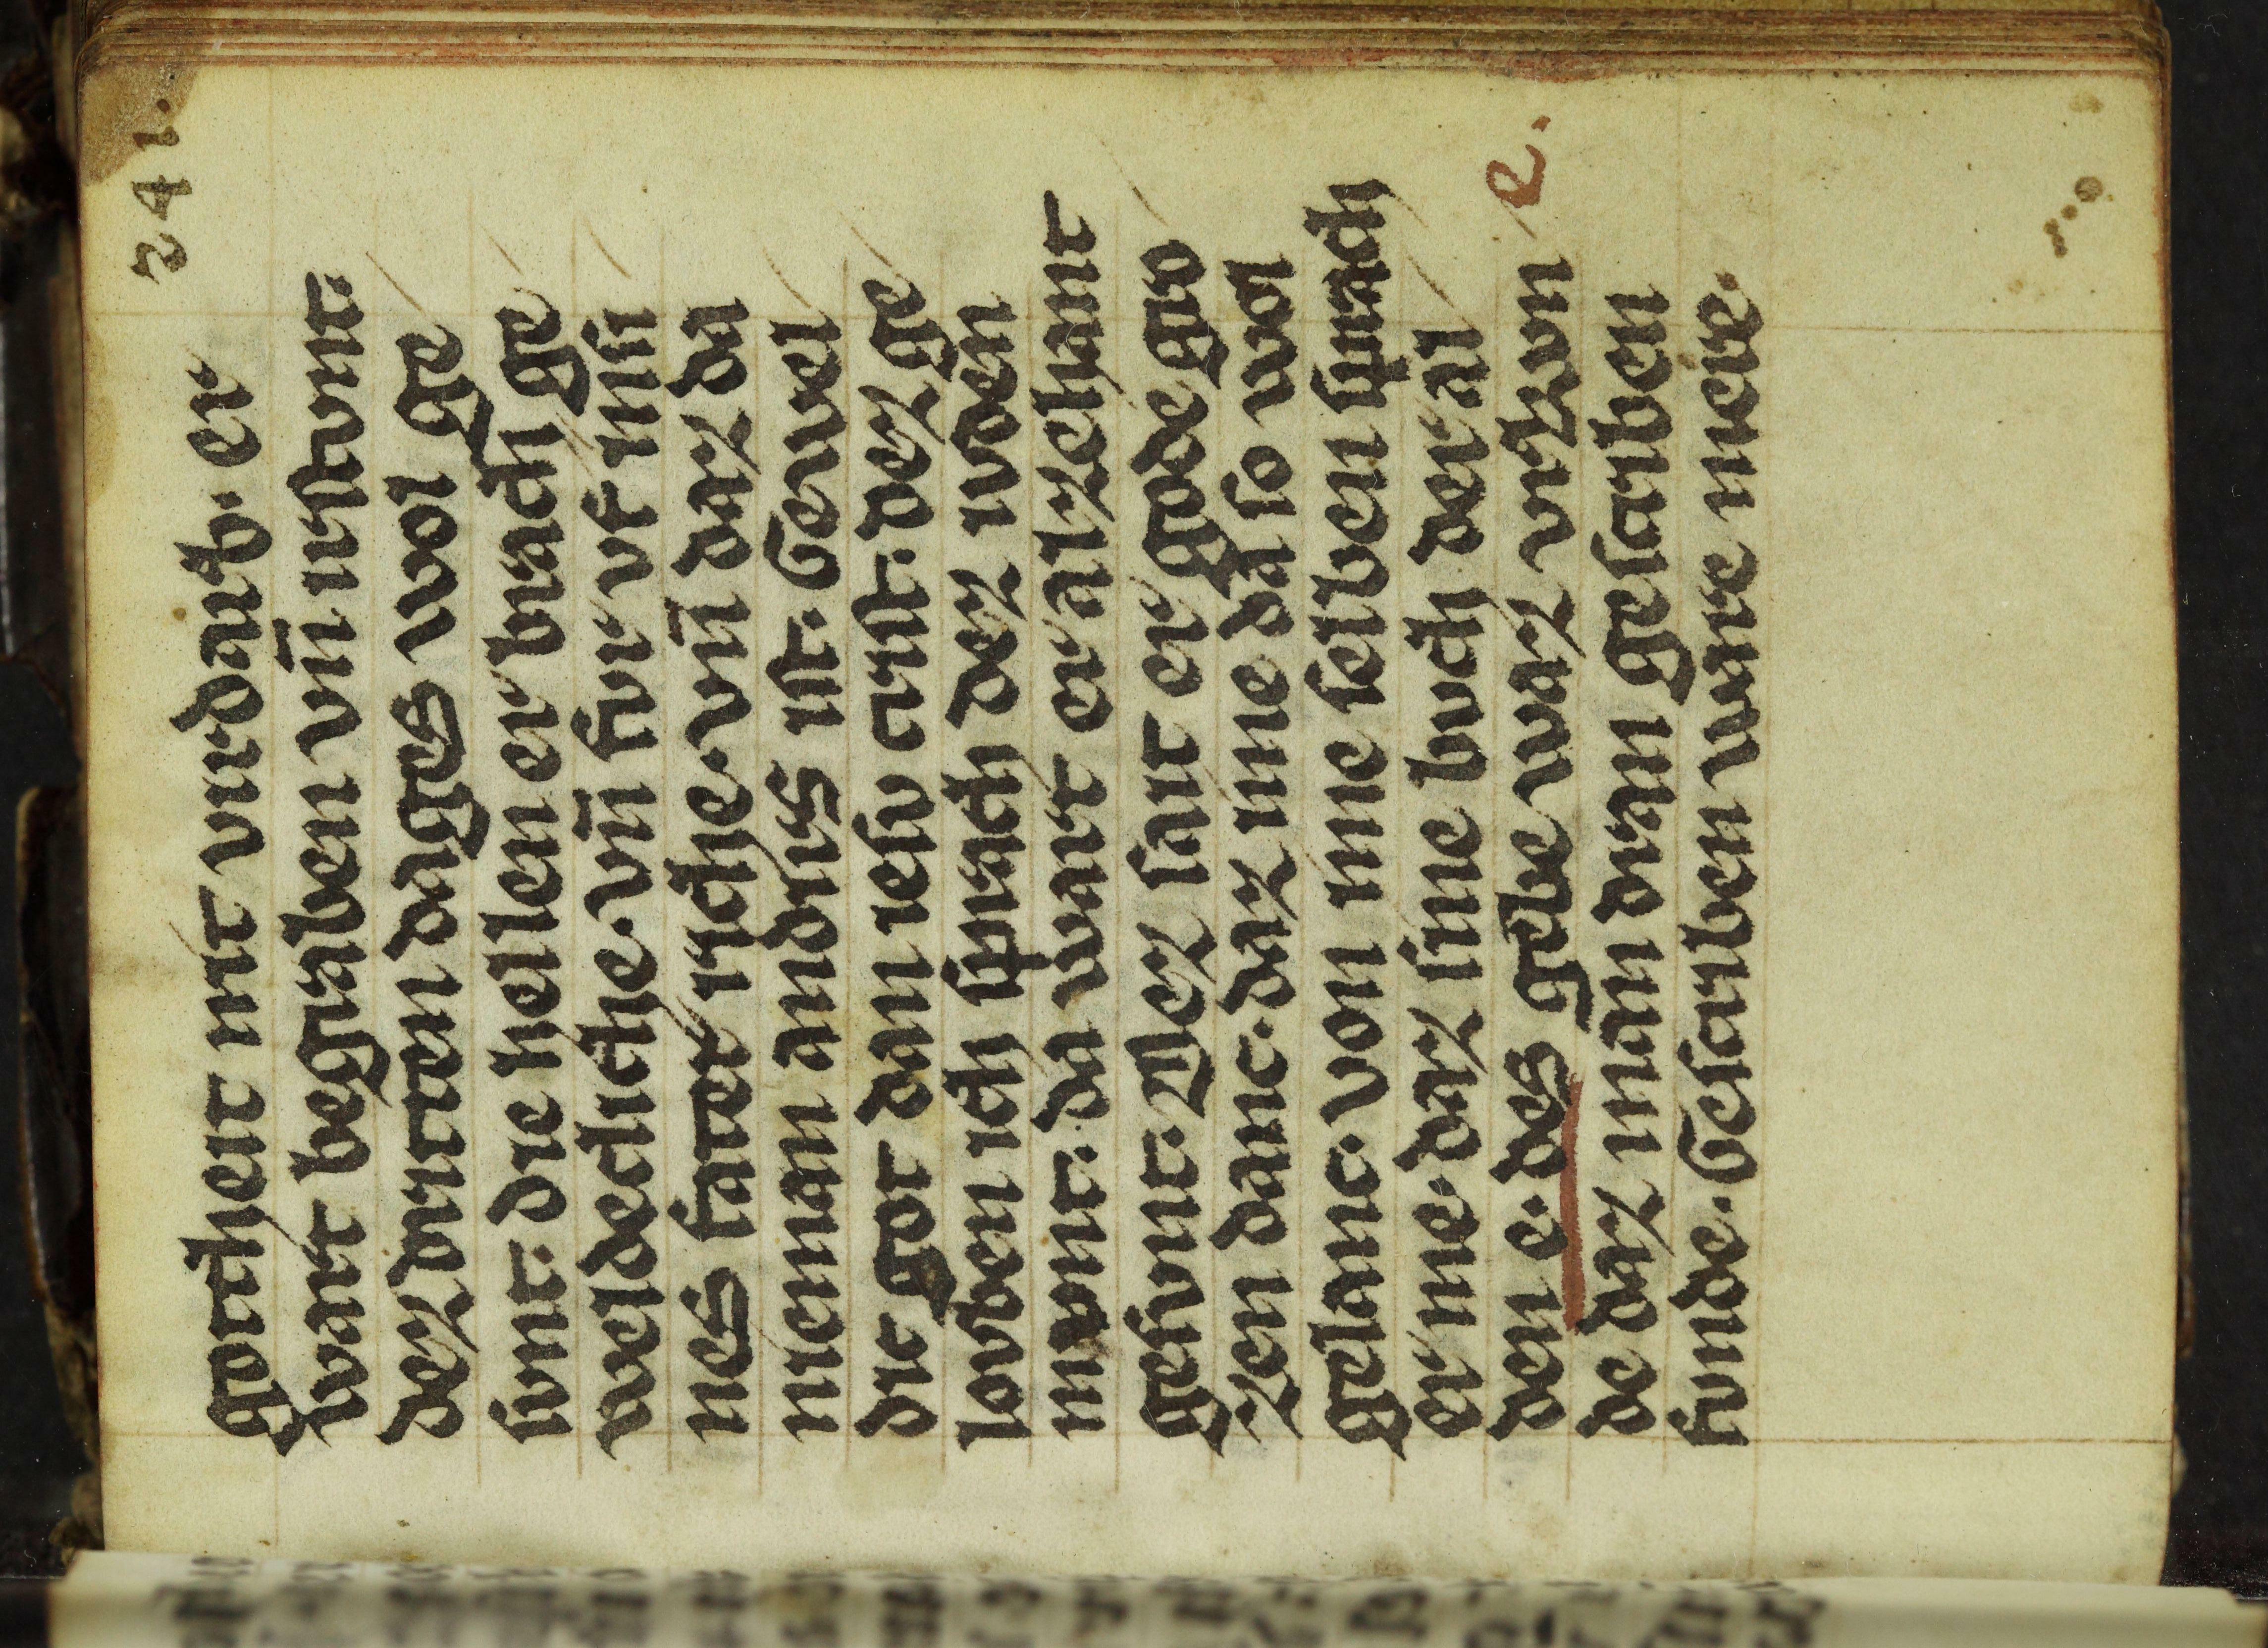 241.
gotheit nit virdarb. er
wart begraben vn̄ irstvnt.
dez dritten dages wol ge
svnt. die hellen er brach ge
weldecliche. vn̄ fvr vf insi
nes fater riche. vn̄ daz da
nieman andirs ist. Gewel
dic got dan iesv crist. dez ge
lovben ich sprach der ivden
mvnt. da wart er alzehant
gesvnt. Mez sait er gode gro
zen danc. daz ime da so wol
gelanc. von ime selben sprach
er me. daz sine bvch der al
den e. des gebe waz vrkvn
R.
de daz man dran gescriben
fvnde. Gescriben ware mere.